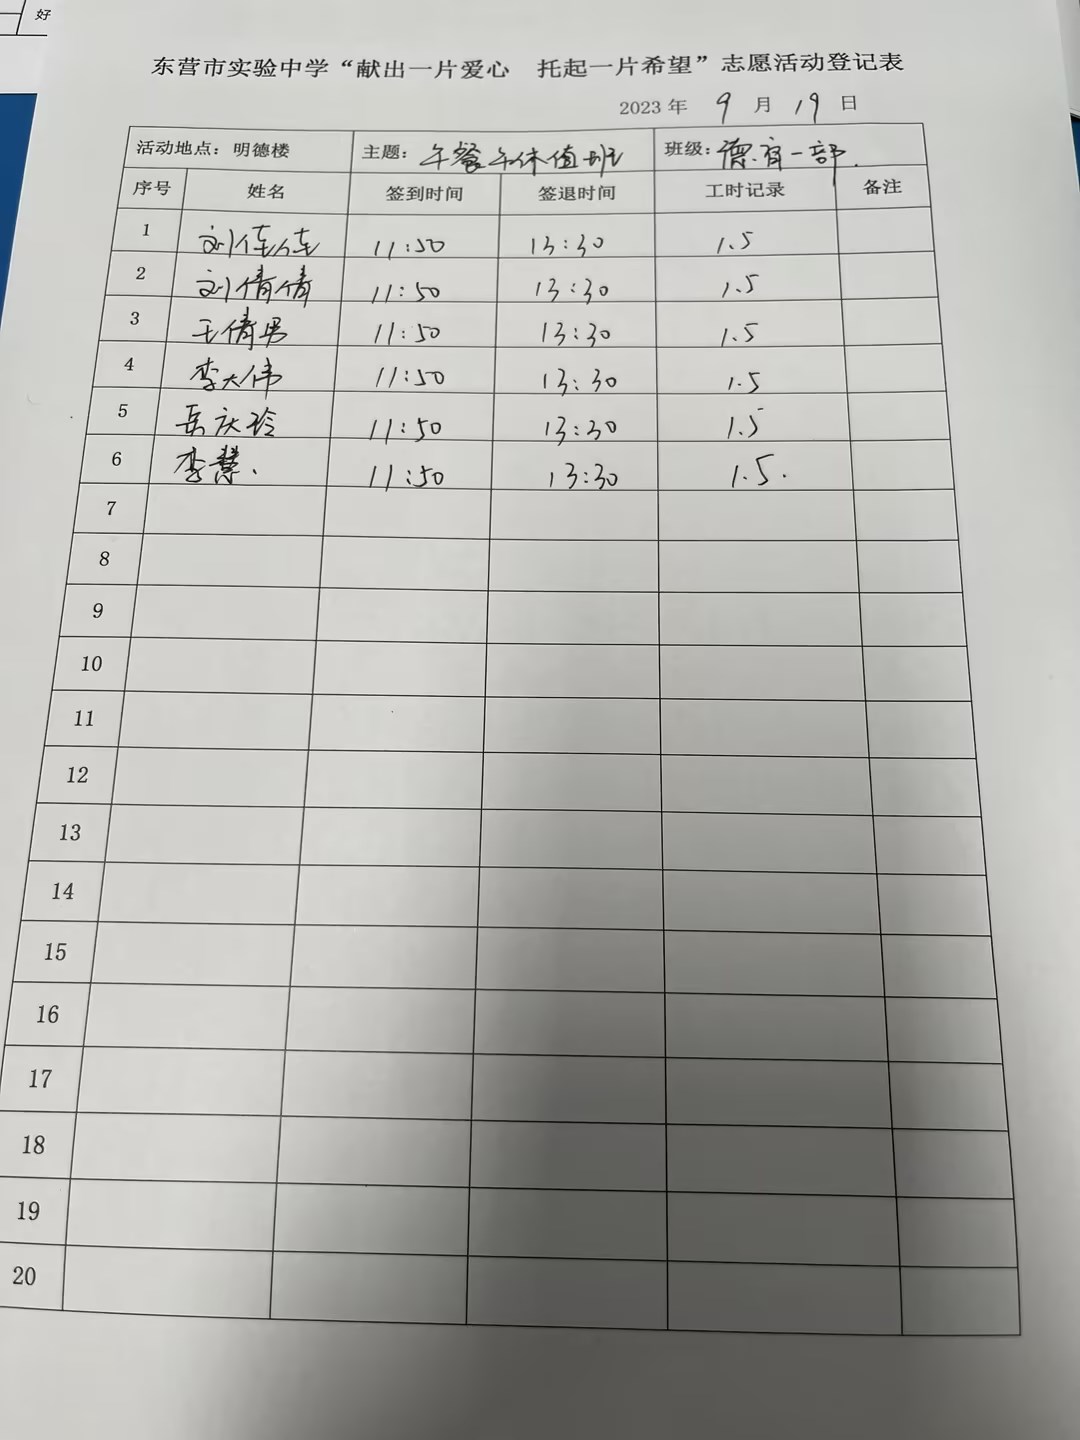 好
东营市实验中学“献出一片爱心 托起一片希望”志愿活动登记表
2023 年 9 月 19 日
活动地点：明德楼 主题：午餐午休值班 班级：德育一部.
序号 姓名 签到时间 签退时间 工时记录 备注
1 刘佳佳 11:50 13:30 1.5
2 刘倩倩 11:50 13:30 1.5
3 王倩男 11:50 13:30 1.5
4 李大伟 11:50 13:30 1.5
5 岳庆玲 11:50 13:30 1.5
6 李慧. 11:50 13:30 1.5.
7
8
9
10
11
12
13
14
15
16
17
18
19
20